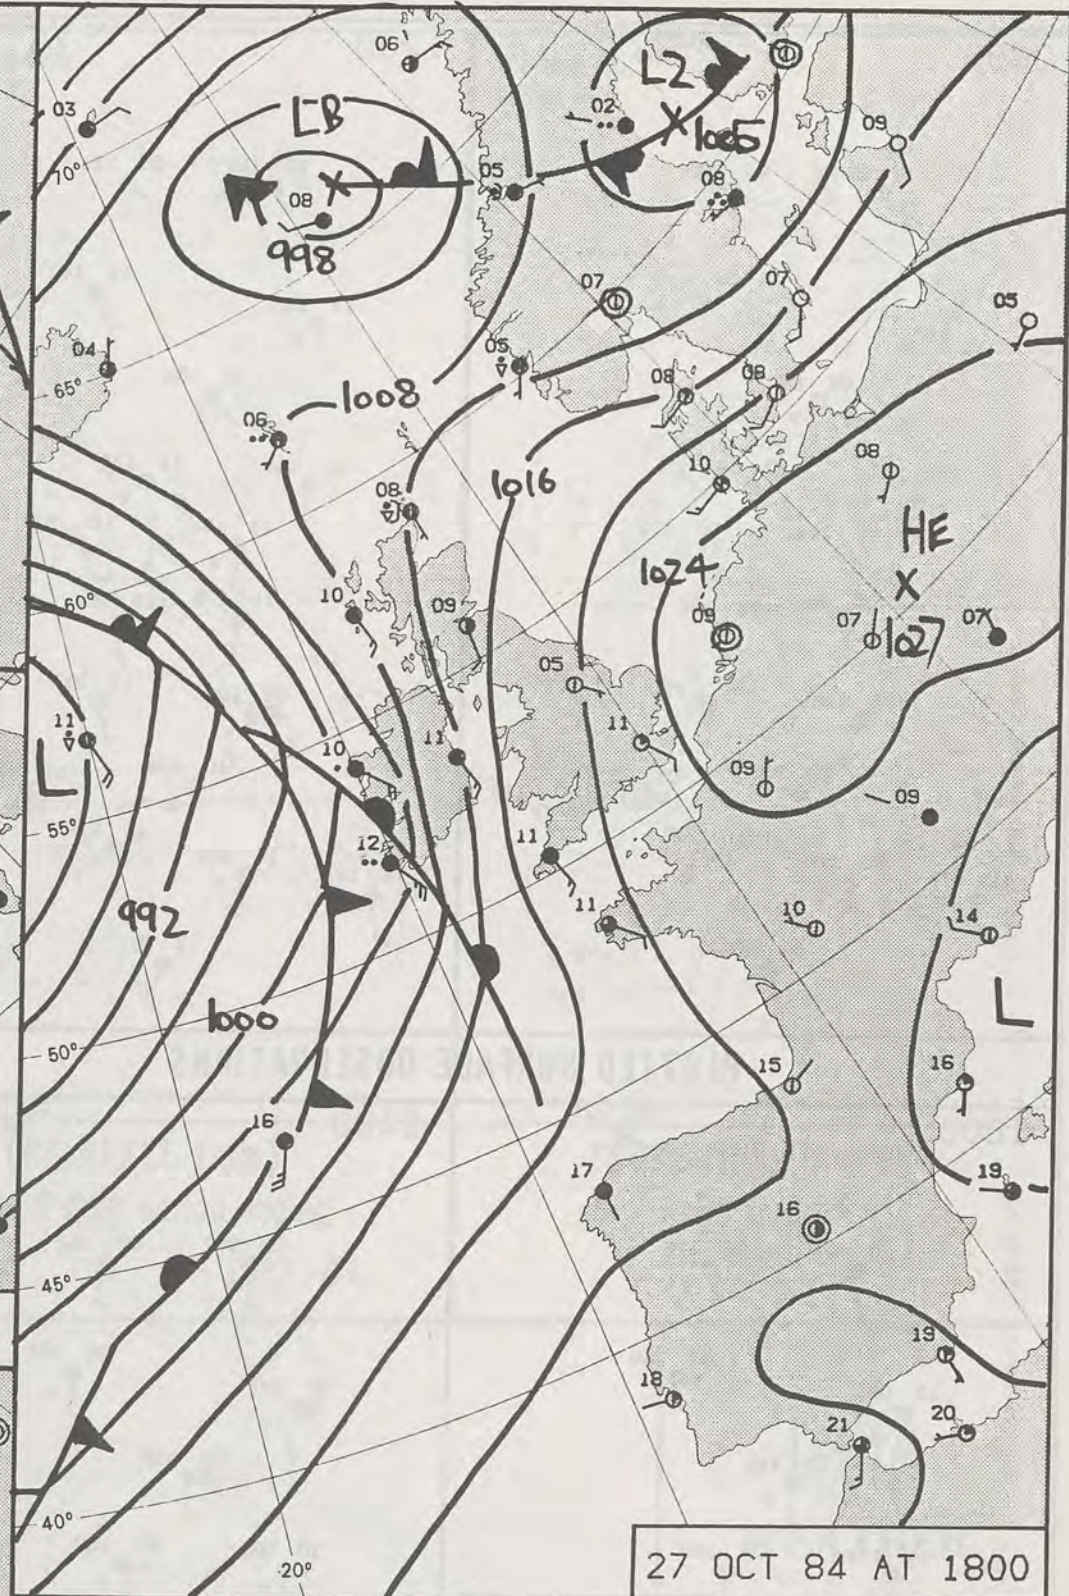 06
03
70°
LB
08
998
05
02
LZ
1005
08
09
07
07
05
04
65°
05
08
08
06
1008
08
1016
10
08
HE
1027
60°
10
09
1024
09
07
07
11
L
05
11
10
11
09
09
55°
12
11
992
11
10
14
L
1000
50°
15
16
16
17
19
16
45°
19
18
21
20
40°
20°
27 OCT 84 AT 1800